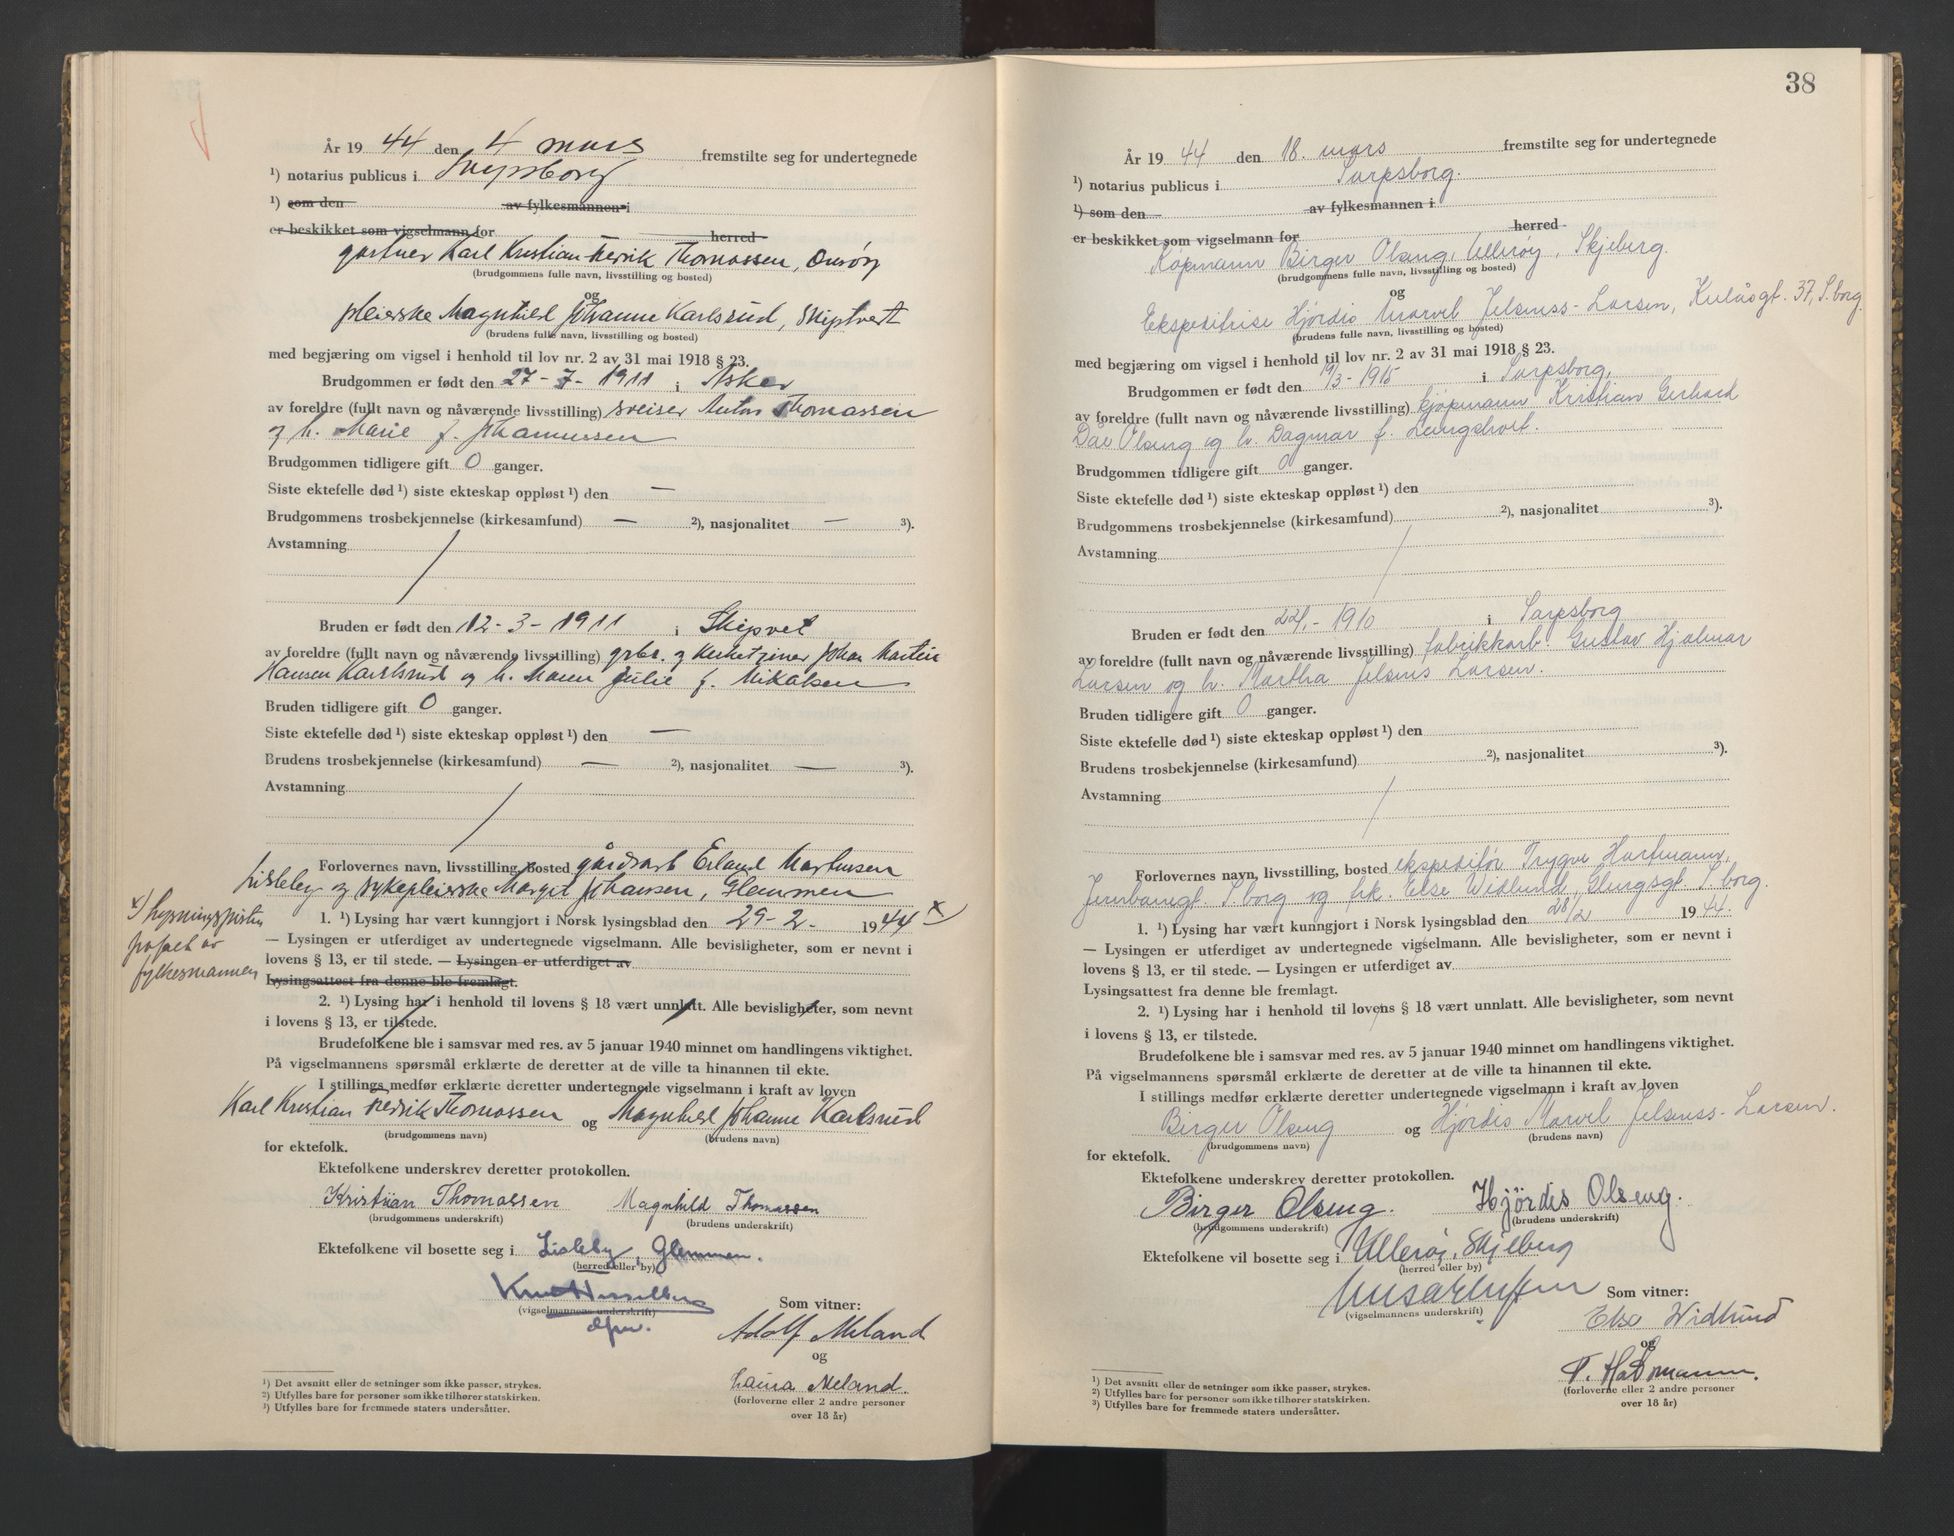 År 19 44 den 4 mars fremstilte seg for undertegnede
¹) notarius publicus i Sarpsborg
¹) som den av fylkesmannen i
er beskikket som vigselmann for herred
gartner Karl Kristian Fredrik Thomassen, Onsøy
(brudgommens fulle navn, livsstilling og bosted)
og
pleierske Magnhild Johanne Karlsrud, Skiptvet
(brudens fulle navn, livsstilling og bosted)
med begjæring om vigsel i henhold til lov nr. 2 av 31 mai 1918 § 23.
Brudgommen er født den 27-7-1911 i Asker
av foreldre (fullt navn og nåværende livsstilling) sveiser Anton Thomassen
og h. Marie f. Johannessen
Brudgommen tidligere gift 0 ganger.
Siste ektefelle død ¹) siste ekteskap oppløst ¹) den —
Brudgommens trosbekjennelse (kirkesamfund) — ²), nasjonalitet — ³).
Avstamning
Bruden er født den 12-3-1911 i Skipvet
av foreldre (fullt navn og nåværende livsstilling) gbr. og kirketjener Johan Martin
Hansen Karlsrud og h. Maren Julie f. Mikalsen
Bruden tidligere gift 0 ganger.
Siste ektefelle død ¹) siste ekteskap oppløst ¹) den —
Brudens trosbekjennelse (kirkesamfund) — ²), nasjonalitet — ³).
Avstamning
Forlovernes navn, livsstilling, bosted gårdsarb Erland Martinsen
Lisleby og sykepleierske Margit Johansen, Glemmen
1. ¹) Lysing har vært kunngjort i Norsk lysingsblad den 29-2- 1944 x)
x) Lysningspisten
— Lysingen er utferdiget av undertegnede vigselmann. Alle bevisligheter, som er nevnt i
av
lovens § 13, er til stede. — Lysingen er utferdiget av
fylkesmannen
Lysingsattest fra denne ble fremlagt.
2. ¹) Lysing har i henhold til lovens § 18 vært unnlatt. Alle bevisligheter, som nevnt
i lovens § 13, er tilstede.
Brudefolkene ble i samsvar med res. av 5 januar 1940 minnet om handlingens viktighet.
På vigselmannens spørsmål erklærte de deretter at de ville ta hinannen til ekte.
I stillings medfør erklærte deretter undertegnede vigselmann i kraft av loven
Karl Kristian Fredrik Thomassen og Magnhild Johanne Karlsrud
(brudgommens navn) (brudens navn)
for ektefolk.
Ektefolkene underskrev deretter protokollen.
Kristian Thomassen Magnhild Thomassen
(brudgommens underskrift) (brudens underskrift)
Ektefolkene vil bosette seg i Lisleby, Glemmen.
(herred eller by)
(vigselmannens underskrift) Som vitner:
Adolf Meland
og
Laura Meland.
(forloverne eller 2 andre personer
over 18 år)
¹) Det avsnitt eller de setninger som ikke passer, strykes.
²) Utfylles bare for personer som ikke tilhører statskirken.
³) Utfylles bare for fremmede staters undersåtter.
38
År 19 44 den 18. mars fremstilte seg for undertegnede
¹) notarius publicus i Sarpsborg.
¹) som den av fylkesmannen i
er beskikket som vigselmann for herred
Kopmann Birger Olseng, Ullerøy, Skjeberg.
(brudgommens fulle navn, livsstilling og bosted)
og
Ekspeditrise Hjördis Marvel Jelsness-Larsen, Kulåsgt. 37, S.borg.
(brudens fulle navn, livsstilling og bosted)
med begjæring om vigsel i henhold til lov nr. 2 av 31 mai 1918 § 23.
Brudgommen er født den 19/3-1915 i Sarpsborg,
av foreldre (fullt navn og nåværende livsstilling) kjøpmann Kristian Gerhard
Olseng og h. Dagmar f. Langholt.
Brudgommen tidligere gift 0 ganger.
Siste ektefelle død ¹) siste ekteskap oppløst ¹) den
Brudgommens trosbekjennelse (kirkesamfund) ²), nasjonalitet ³).
Avstamning
Bruden er født den 22/1.-1910 i Sarpsborg
av foreldre (fullt navn og nåværende livsstilling) fabrikkarb. Gustav Hjalmar
Larsen og h. Martha Jelsnes Larsen.
Bruden tidligere gift 0 ganger.
Siste ektefelle død ¹) siste ekteskap oppløst ¹) den
Brudens trosbekjennelse (kirkesamfund) ²), nasjonalitet ³).
Avstamning
Forlovernes navn, livsstilling, bosted ekspeditør Trygve Hartmann,
Jernbanegt. S.borg og frk. Else Widlund, Glengsgt. S.borg.
1. ¹) Lysing har vært kunngjort i Norsk lysingsblad den 28/2 1944.
— Lysingen er utferdiget av undertegnede vigselmann. Alle bevisligheter, som er nevnt i
lovens § 13, er til stede. — Lysingen er utferdiget av
Lysingsattest fra denne ble fremlagt.
2. ¹) Lysing har i henhold til lovens § 18 vært unnlatt. Alle bevisligheter, som nevnt
i lovens § 13, er tilstede.
Brudefolkene ble i samsvar med res. av 5 januar 1940 minnet om handlingens viktighet.
På vigselmannens spørsmål erklærte de deretter at de ville ta hinannen til ekte.
I stillings medfør erklærte deretter undertegnede vigselmann i kraft av loven
Birger Olseng og Hjördis Marvel Jelsness-Larsen.
(brudgommens navn) (brudens navn)
for ektefolk.
Ektefolkene underskrev deretter protokollen.
Birger Olseng. Hjördis Olseng.
(brudgommens underskrift) (brudens underskrift)
Ektefolkene vil bosette seg i Ullerøy, Skjeberg
(herred eller by)
(vigselmannens underskrift) Som vitner:
Else Widlund
og
T. Hartmann.
(forloverne eller 2 andre personer
over 18 år)
¹) Det avsnitt eller de setninger som ikke passer, strykes.
²) Utfylles bare for personer som ikke tilhører statskirken.
³) Utfylles bare for fremmede staters undersåtter.